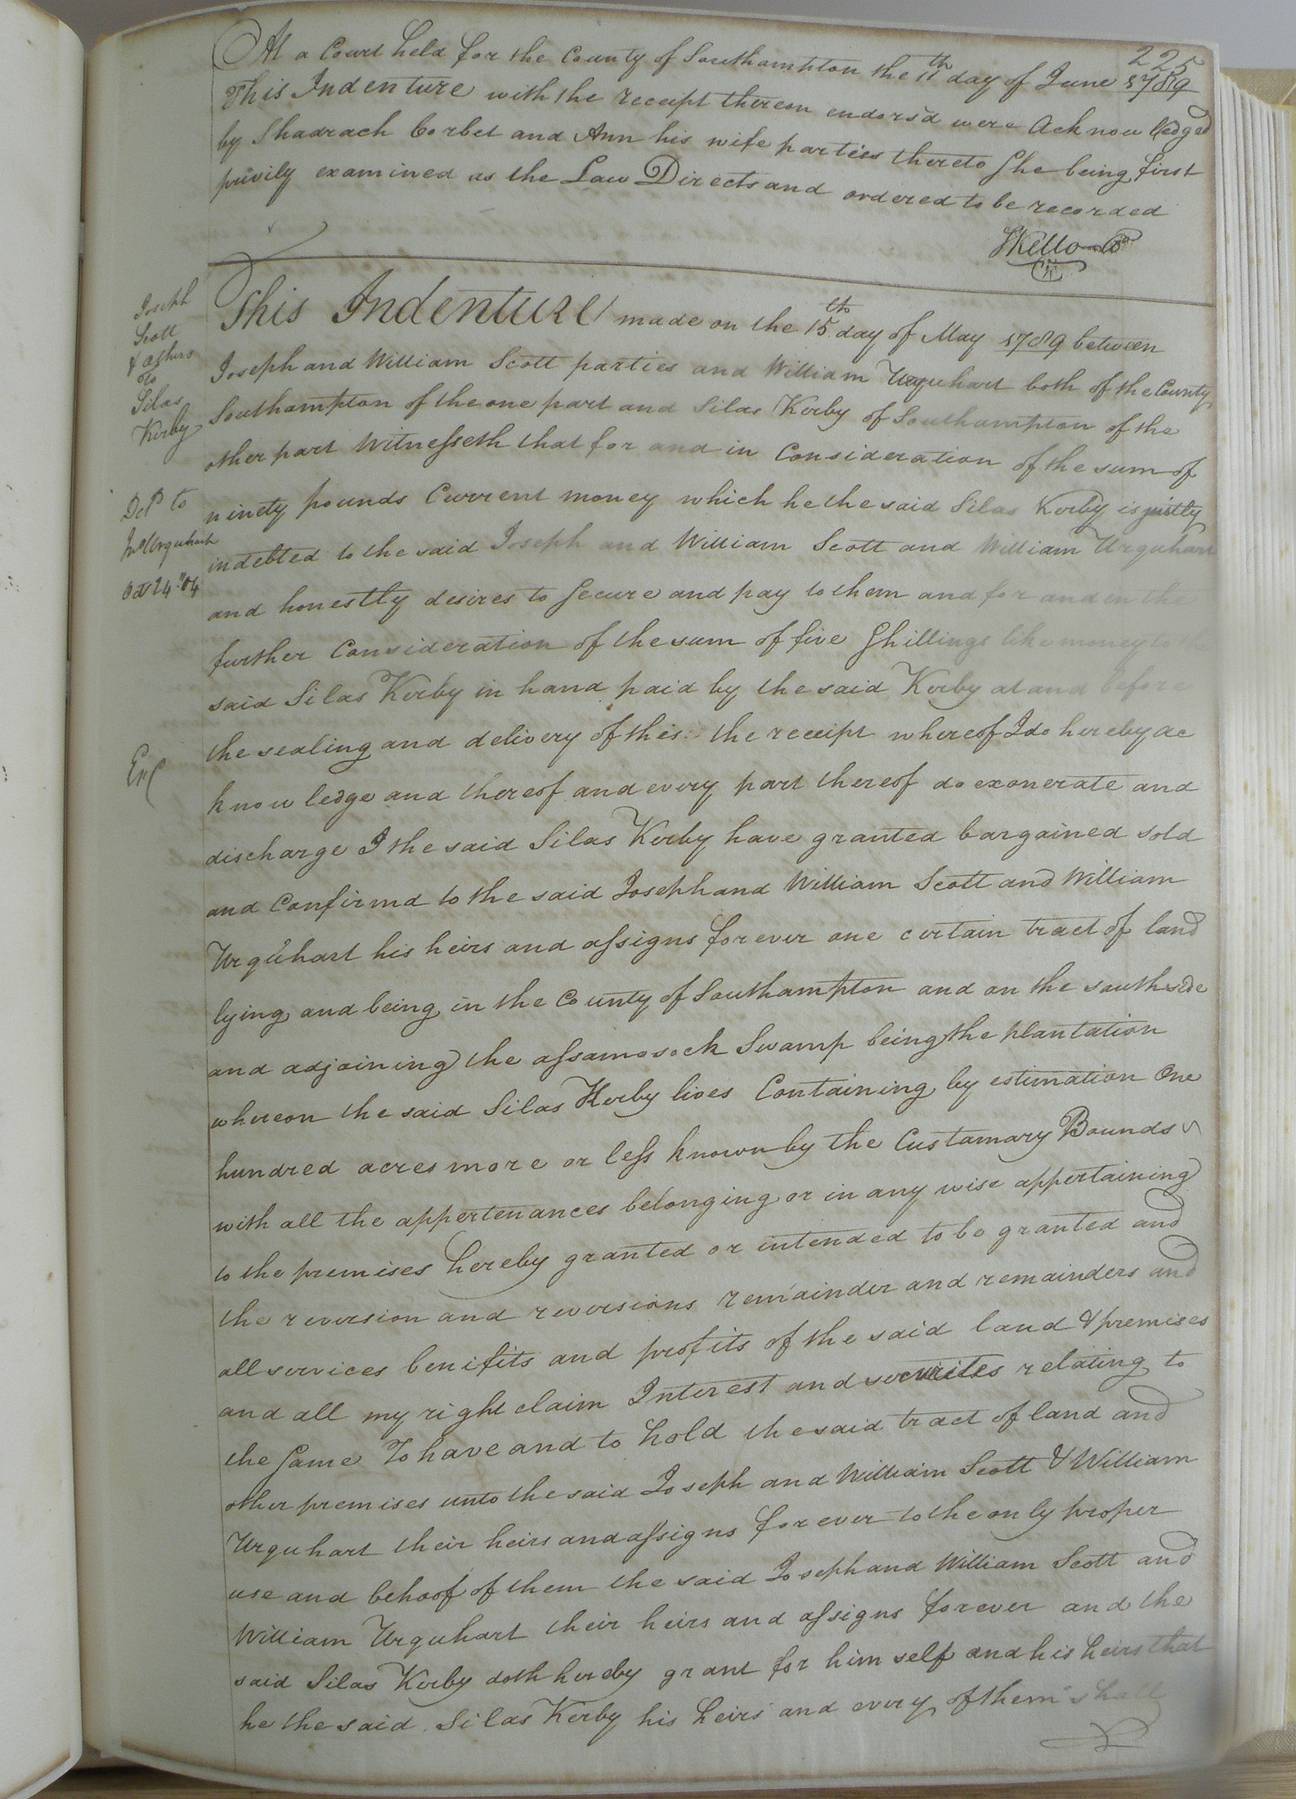 225
At a Court held for the County of Southampton the 11th day of June 1789
This Indenture with the receipt thereon endorsd were Acknowledged
by Shadrach Corbet and Ann his wife parties thereto She being first
privily examined as the Law Directs and ordered to be recorded
This Indenture made on the 15th day of May 1789 between
Joseph and William Scott parties and William Urquhart both of the County
Southampton of the one part and Silas Kirby of Southampton of the
other part Witnesseth that for and in Consideration of the sum of
ninety pounds Current money which he the said Silas Kirby is justly
indebted to the said Joseph and William Scott and William Urquhart
and honestly desires to secure and pay to them and for and in the
further Consideration of the sum of five Shillings like money to the
said Silas Kirby in hand paid by the said Kirby at and before
the sealing and delivery of this the receipt whereof I do hereby ac
knowledge and thereof and every part thereof do exonerate and
discharge I the said Silas Kirby have granted bargained sold
and Confirmd to the said Joseph and William Scott and William
Urquhart his heirs and assigns forever one certain tract of land
lying and being in the County of Southampton and on the south side
and adjoining the assamosock Swamp being the plantation
whereon the said Silas Kerby lives Containing by estimation One
hundred acres more or less known by the Customary Bounds
with all the appertenances belonging or in any wise appertaining
to the premises hereby granted or intended to be granted and
the reversion and reversions remainder and remainders and
all services benifits and profits of the said land & premises
and all my right claim Interest and securites relating to
the same To have and to hold the said tract of land and
other premises unto the said Joseph and William Scott & William
Urquhart their heirs and assigns forever to the only proper
use and behoof of them the said Joseph and William Scott and
William Urquhart their heirs and assigns forever and the
said Silas Kirby doth hereby grant for him self and his heirs that
he the said Silas Kirby his heirs and every of them shall
Joseph
Scott
& others
To
Silas
Kirby
Del to
Urquhart